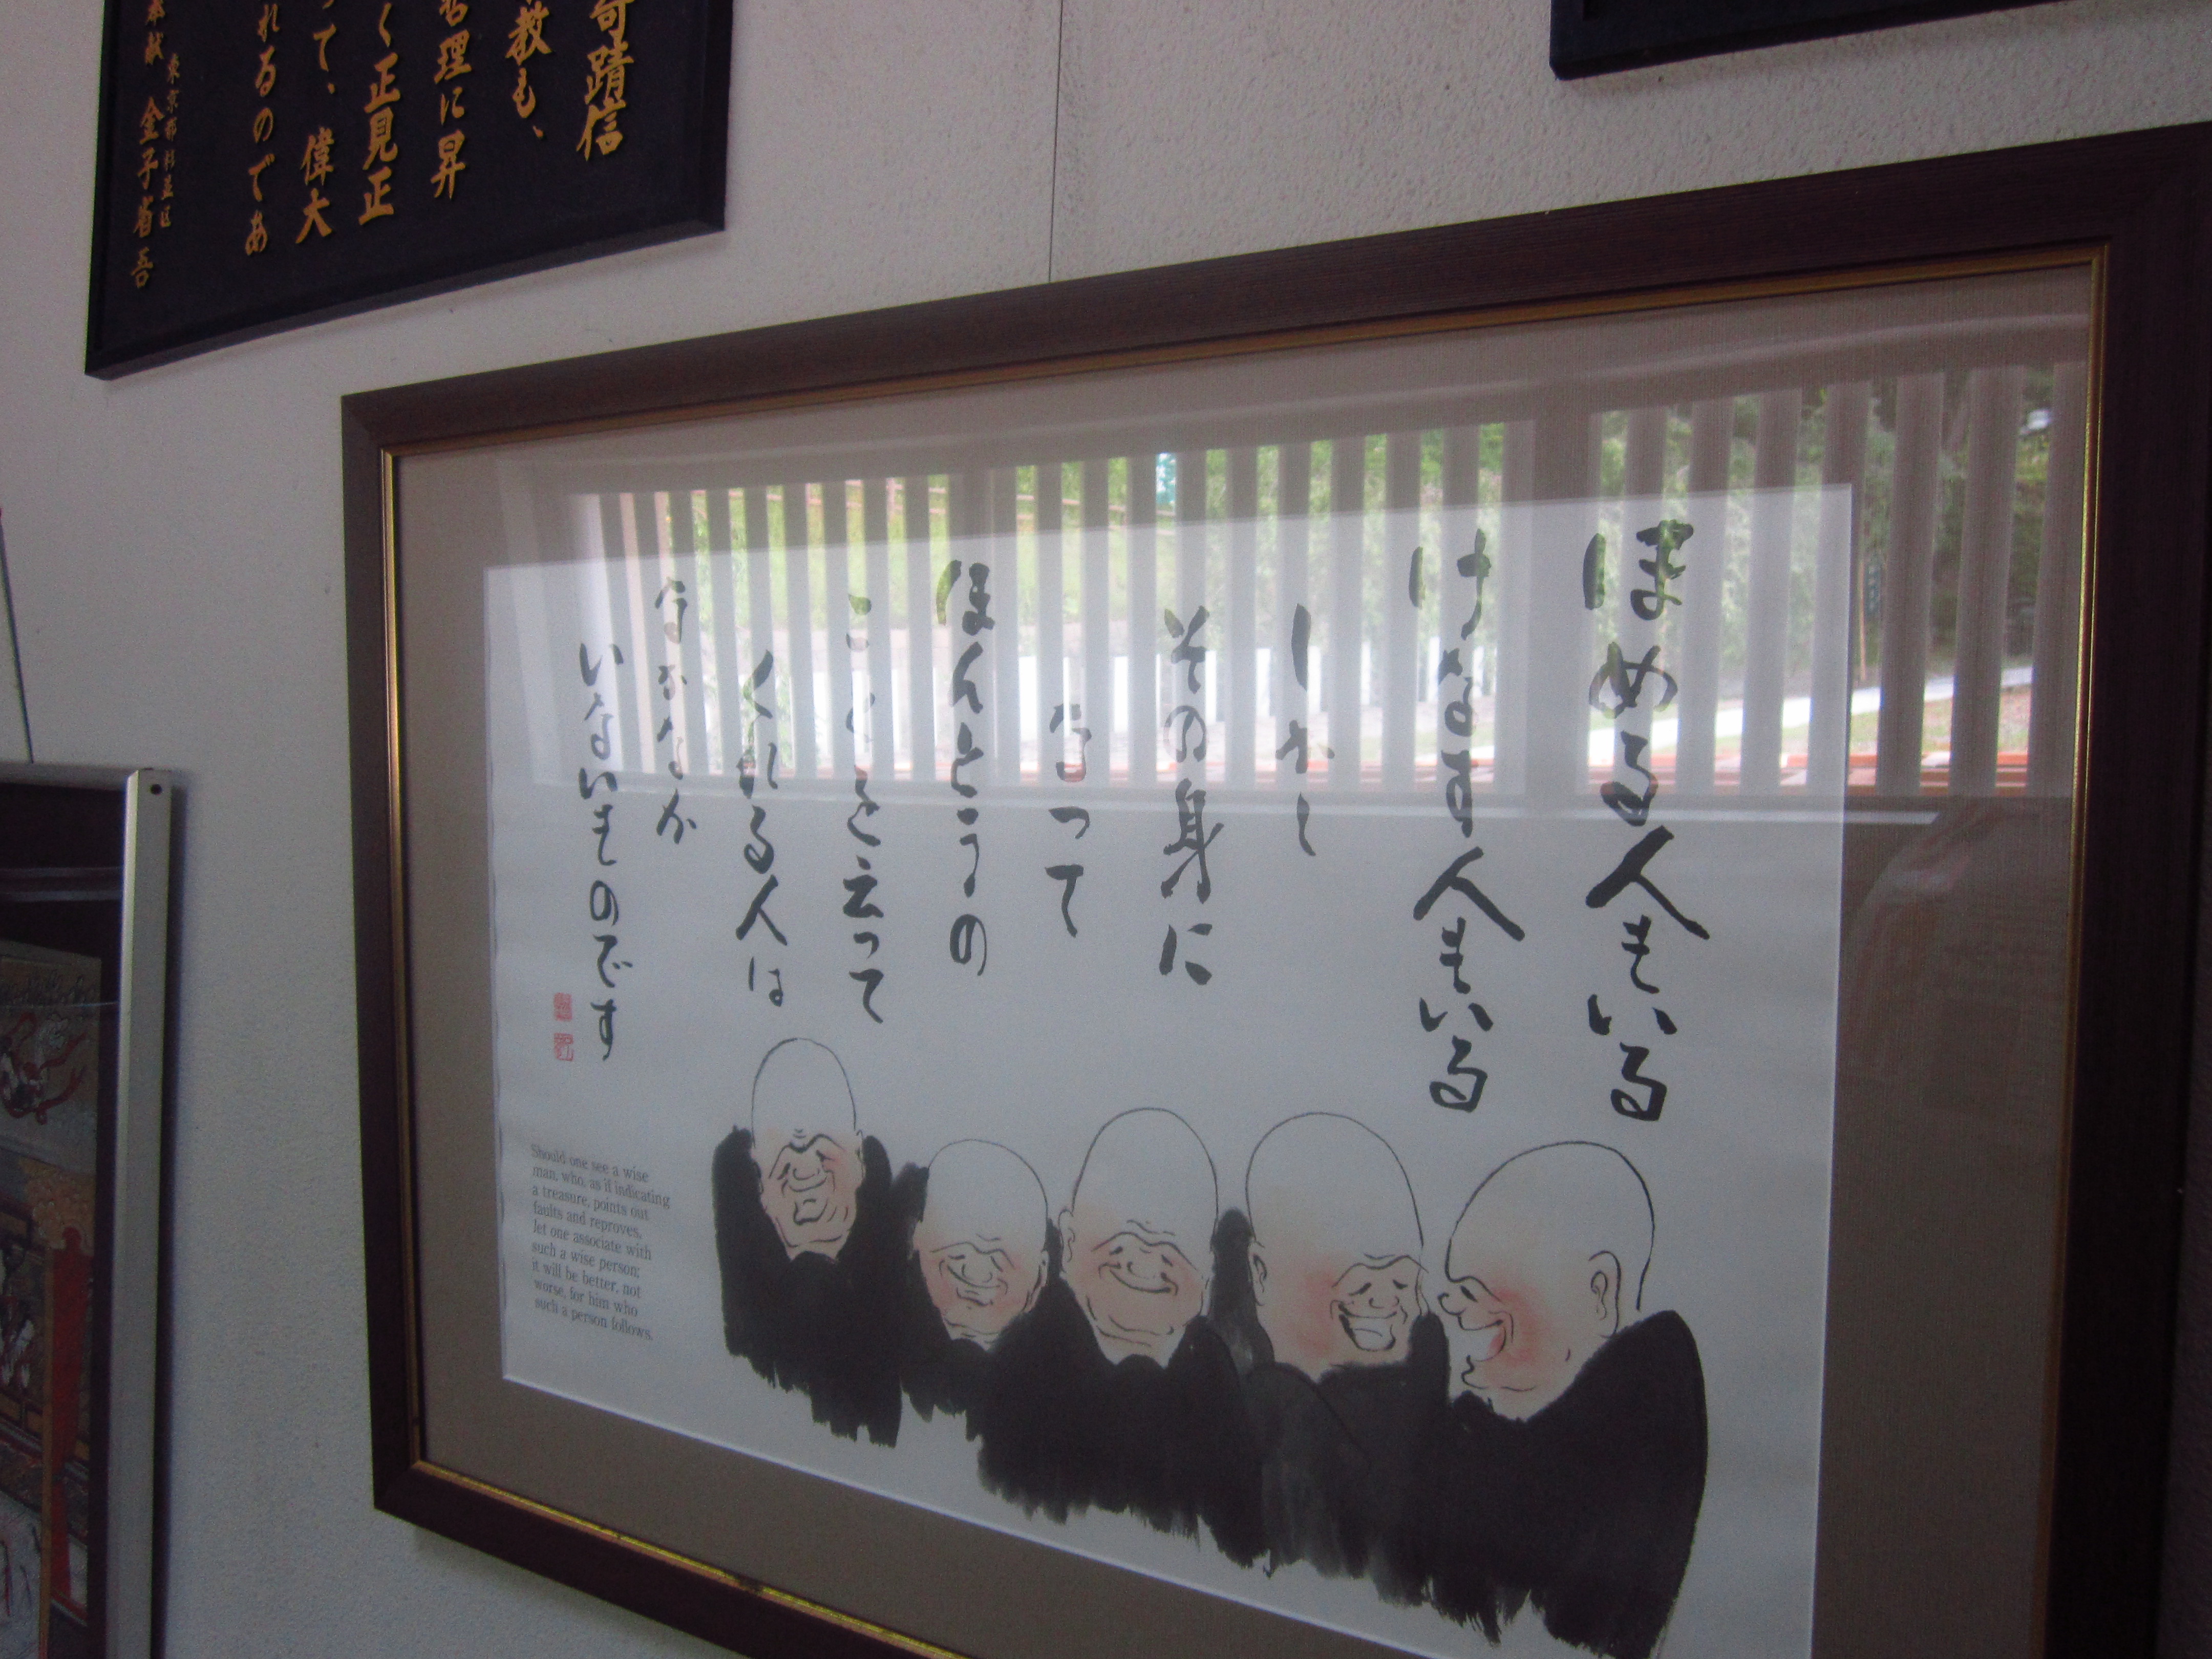 奇蹟信
教も、
理に昇
く正見正
って、偉大
れるのであ
東京都杉並区
奉献 金子省吾
ほめる人もいる
けなす人もいる
しかし
その身に
なって
ほんとうの
ことを云って
くれる人は
なかなか
いないものです
Should one see a wise
man, who, as if indicating
a treasure, points out
faults and reproves,
let one associate with
such a wise person;
it will be better, not
worse, for him who
such a person follows.